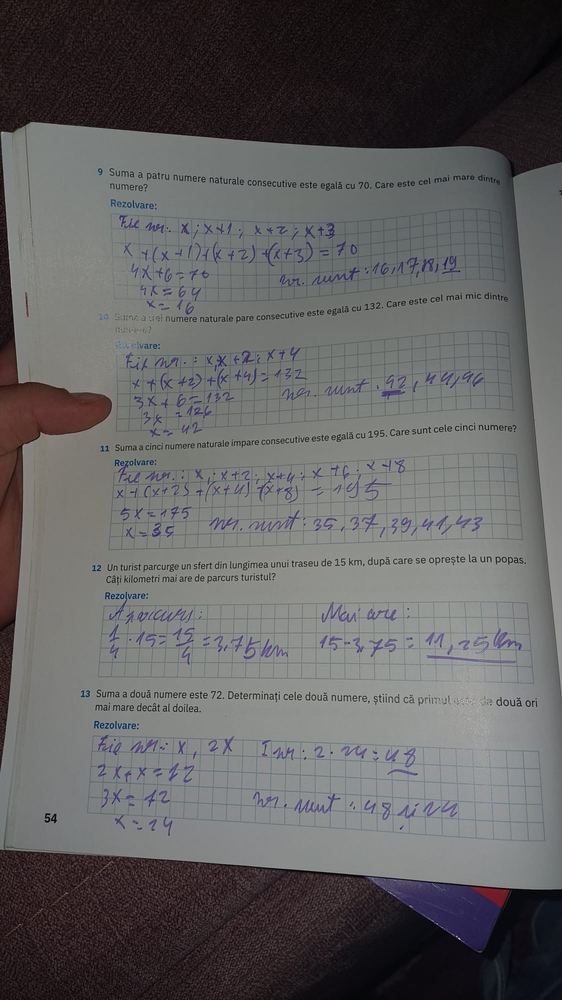 9 Suma a patru numere naturale consecutive este egală cu 70. Care este cel mai mare dintre
numere?
Rezolvare:
Fie nr.: x; x+1; x+2; x+3
x+(x+1)+(x+2)+(x+3)=70
4x+6=70
4x=64
x=16
nr. sunt: 16, 17, 18, 19
10 Suma a trei numere naturale pare consecutive este egală cu 132. Care este cel mai mic dintre
numere?
Rezolvare:
Fie nr.: x, x+2; x+4
x+(x+2)+(x+4)=132
3x+6=132
3x=126
x=42
nr. sunt: 42, 44, 46
11 Suma a cinci numere naturale impare consecutive este egală cu 195. Care sunt cele cinci numere?
Rezolvare:
Fie nr.: x; x+2; x+4; x+6; x+8
x+(x+2)+(x+4)+(x+8)=195
5x=175
x=35
nr. sunt: 35, 37, 39, 41, 43
12 Un turist parcurge un sfert din lungimea unui traseu de 15 km, după care se oprește la un popas.
Câți kilometri mai are de parcurs turistul?
Rezolvare:
A parcurs:
1/4 · 15 = 15/4 = 3,75 km
Mai are:
15-3,75 = 11,25 km
13 Suma a două numere este 72. Determinați cele două numere, știind că primul este de două ori
mai mare decât al doilea.
Rezolvare:
Fie nr: x, 2x
2x+x=72
3x=72
x=24
I nr: 2·24=48
nr. sunt: 48 și 24
54